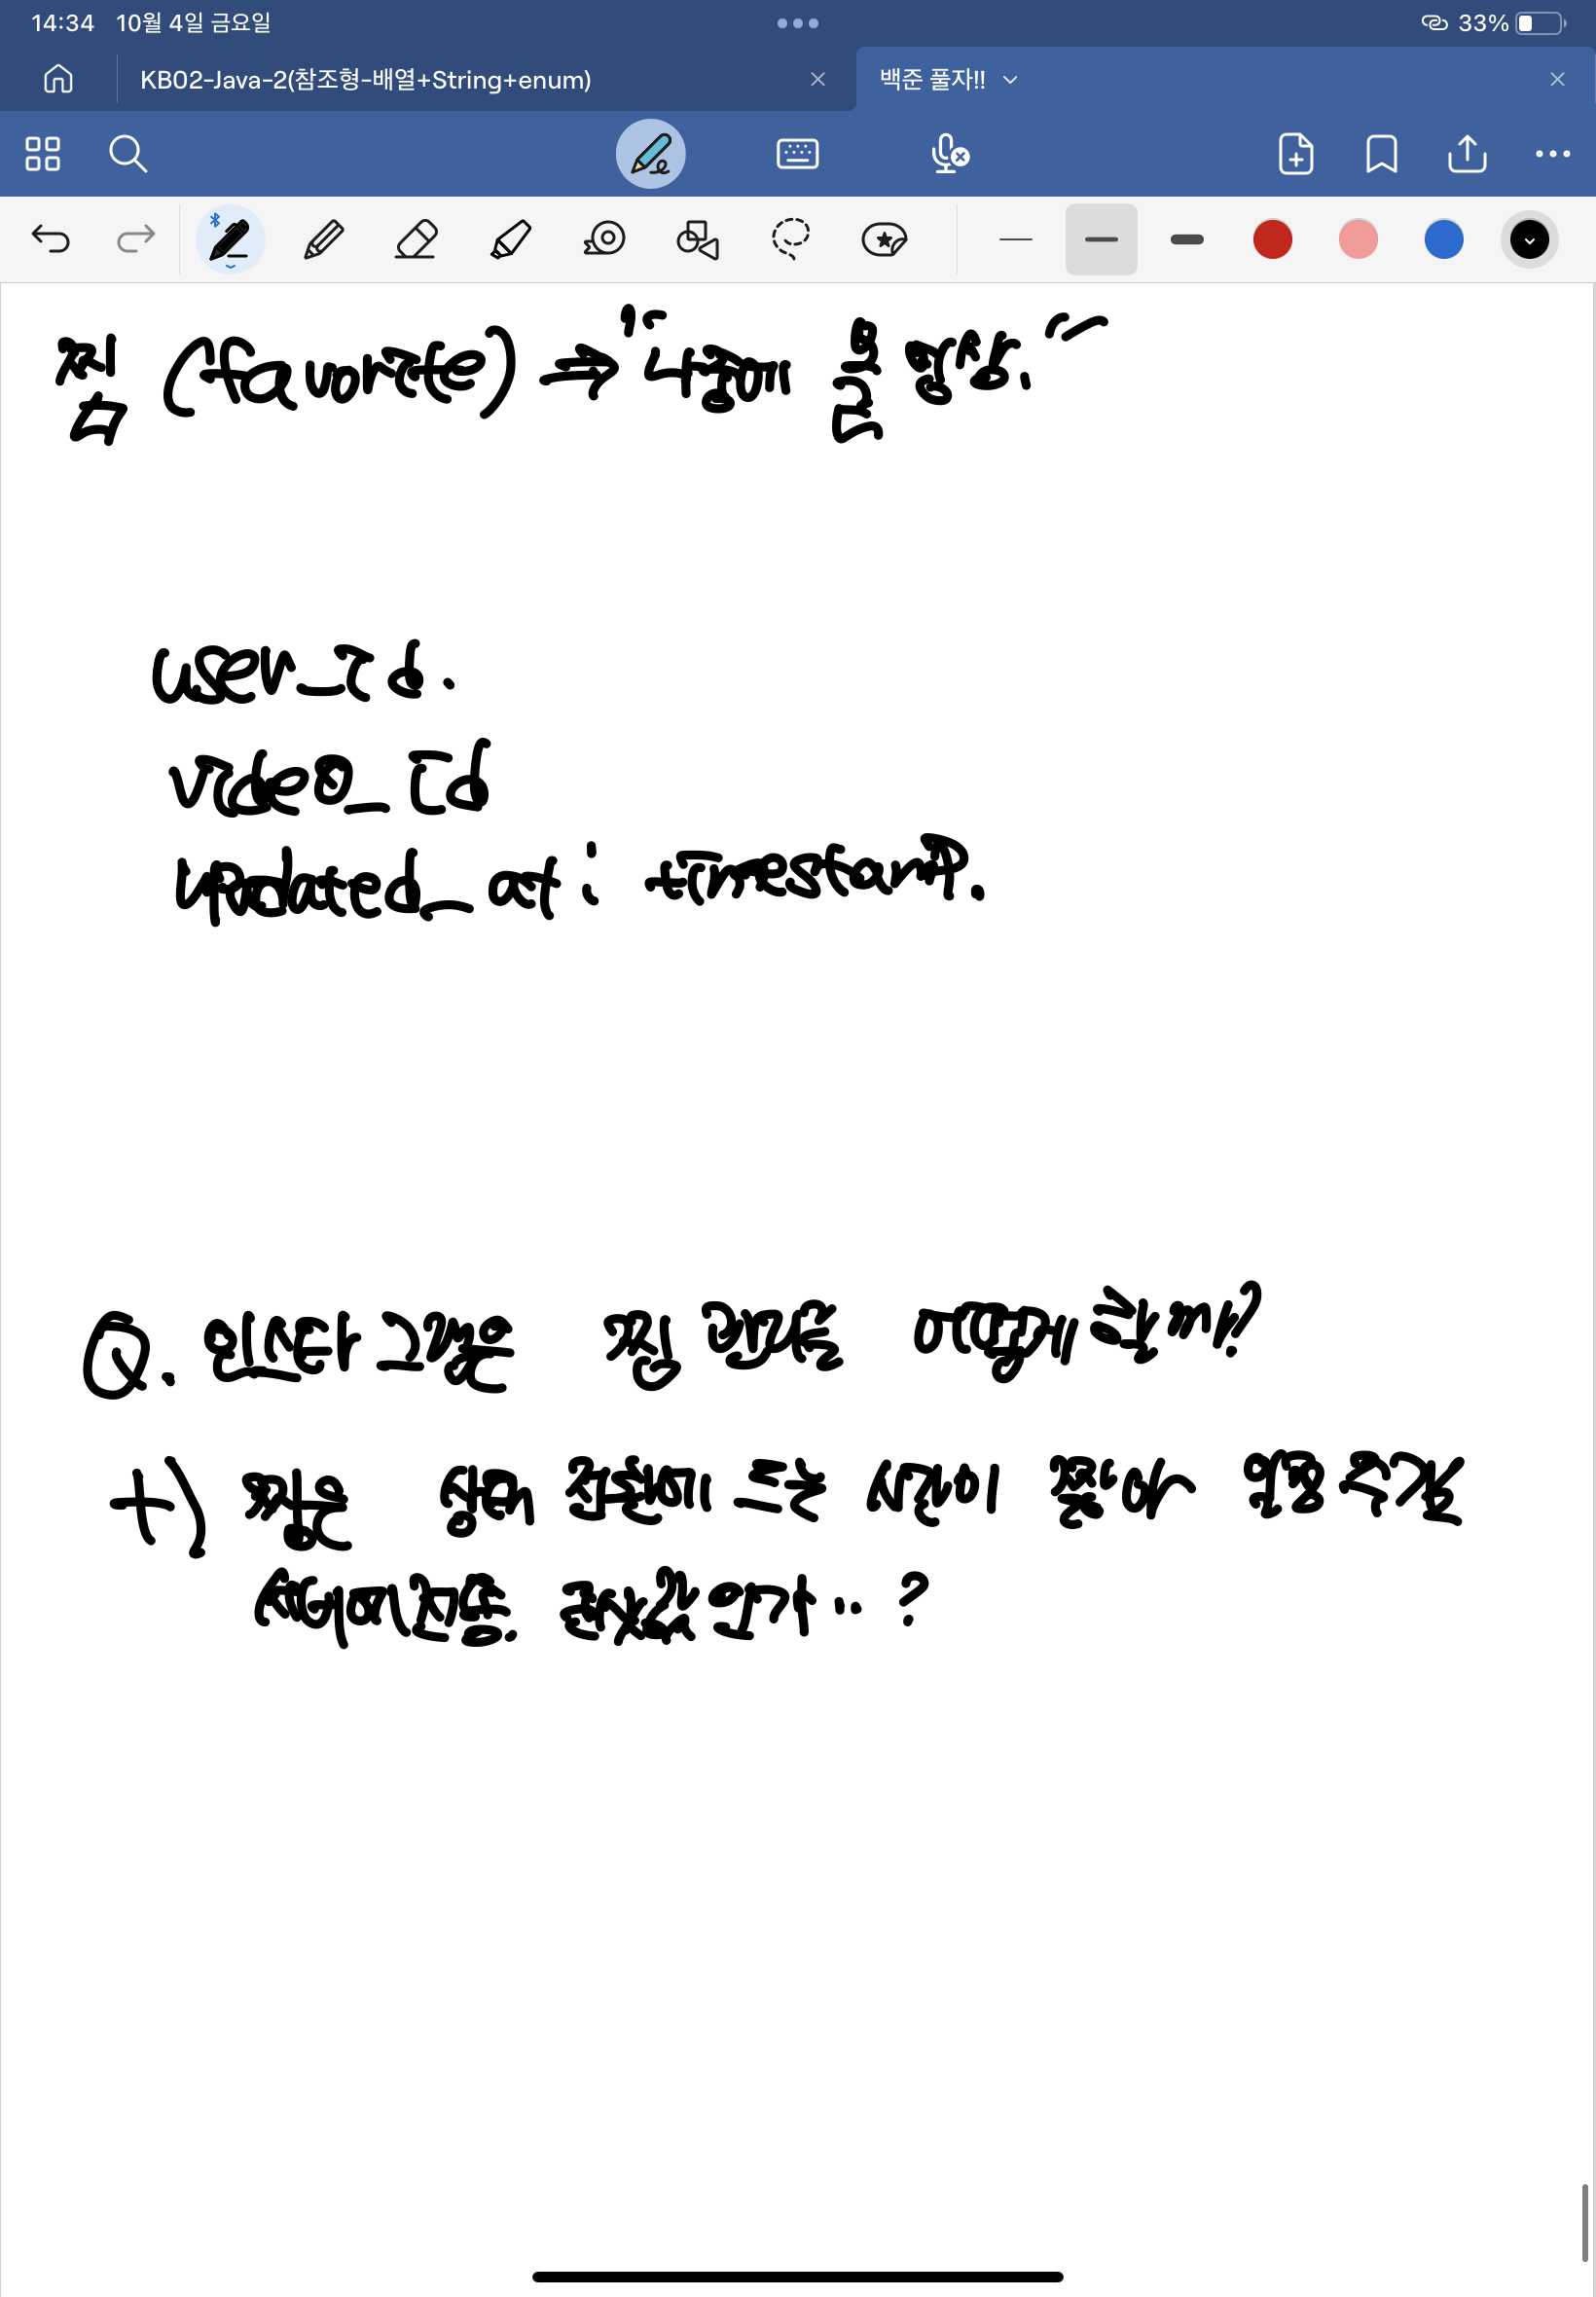 14:34 10월 4일 금요일 33%
KB02-Java-2(참조형-배열+String+enum) 백준 풀자!!
찜 (favorite) ⇒ "나중에 볼 영상."
user_id.
video_id
updated_at : timestamp.
Q. 인스타 그램은 찜 판단을 어떻게 할까?
+) 찜은 상태 전환에 드는 시간이 짧아